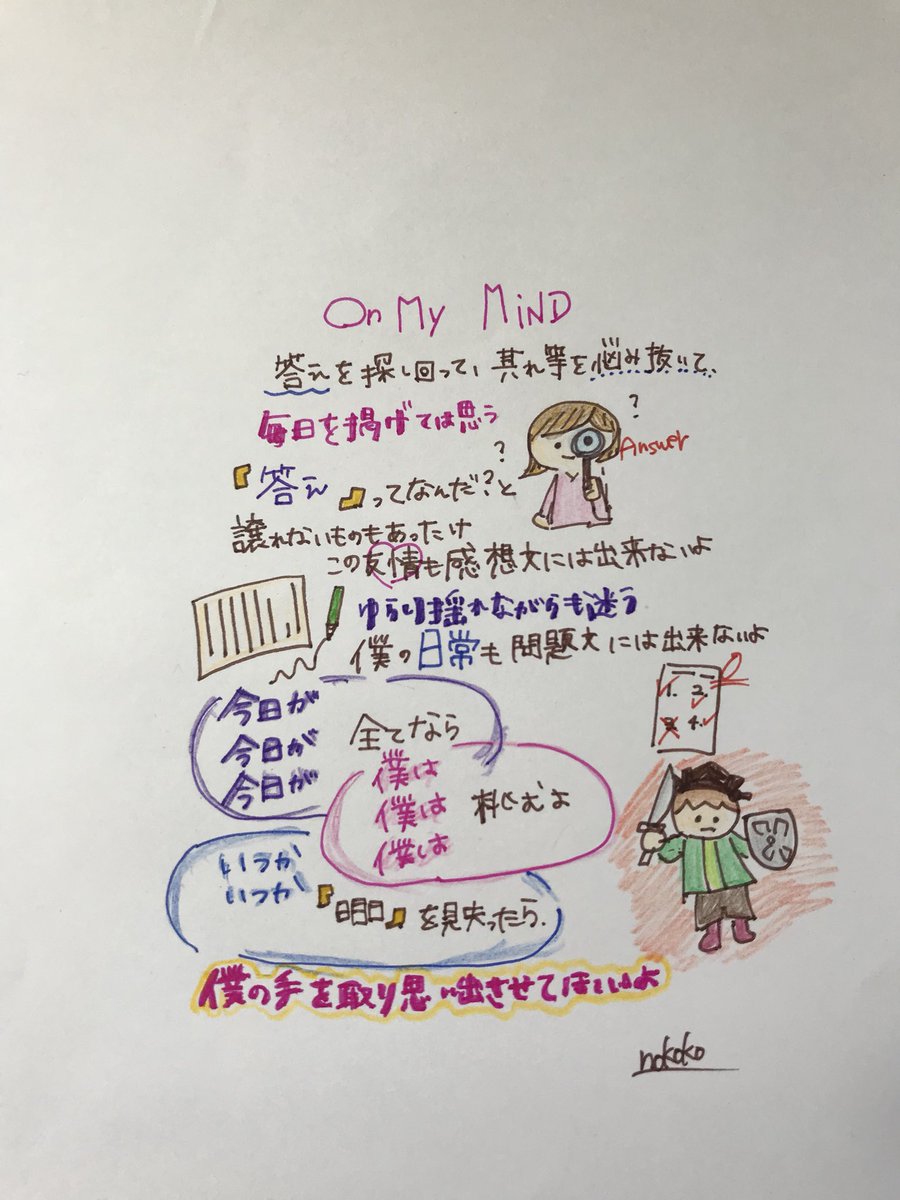 On My MiND
答えを探し回って、其れ等を悩み抜いて、
毎日を掲げては思う
? ?
Answer
『答え』ってなんだ?と
譲れないものもあったけ
この友情も感想文には出来ないよ
ゆらり揺れながらも迷う
僕の日常も問題文には出来ないよ
1. 2.
3 4.
今日が
今日が 全てなら
今日が
僕は
僕は 挑むよ
僕は
いつか
いつか
『明日』を見失ったら.
僕の手を取り思い出させてほしいよ
nokoko